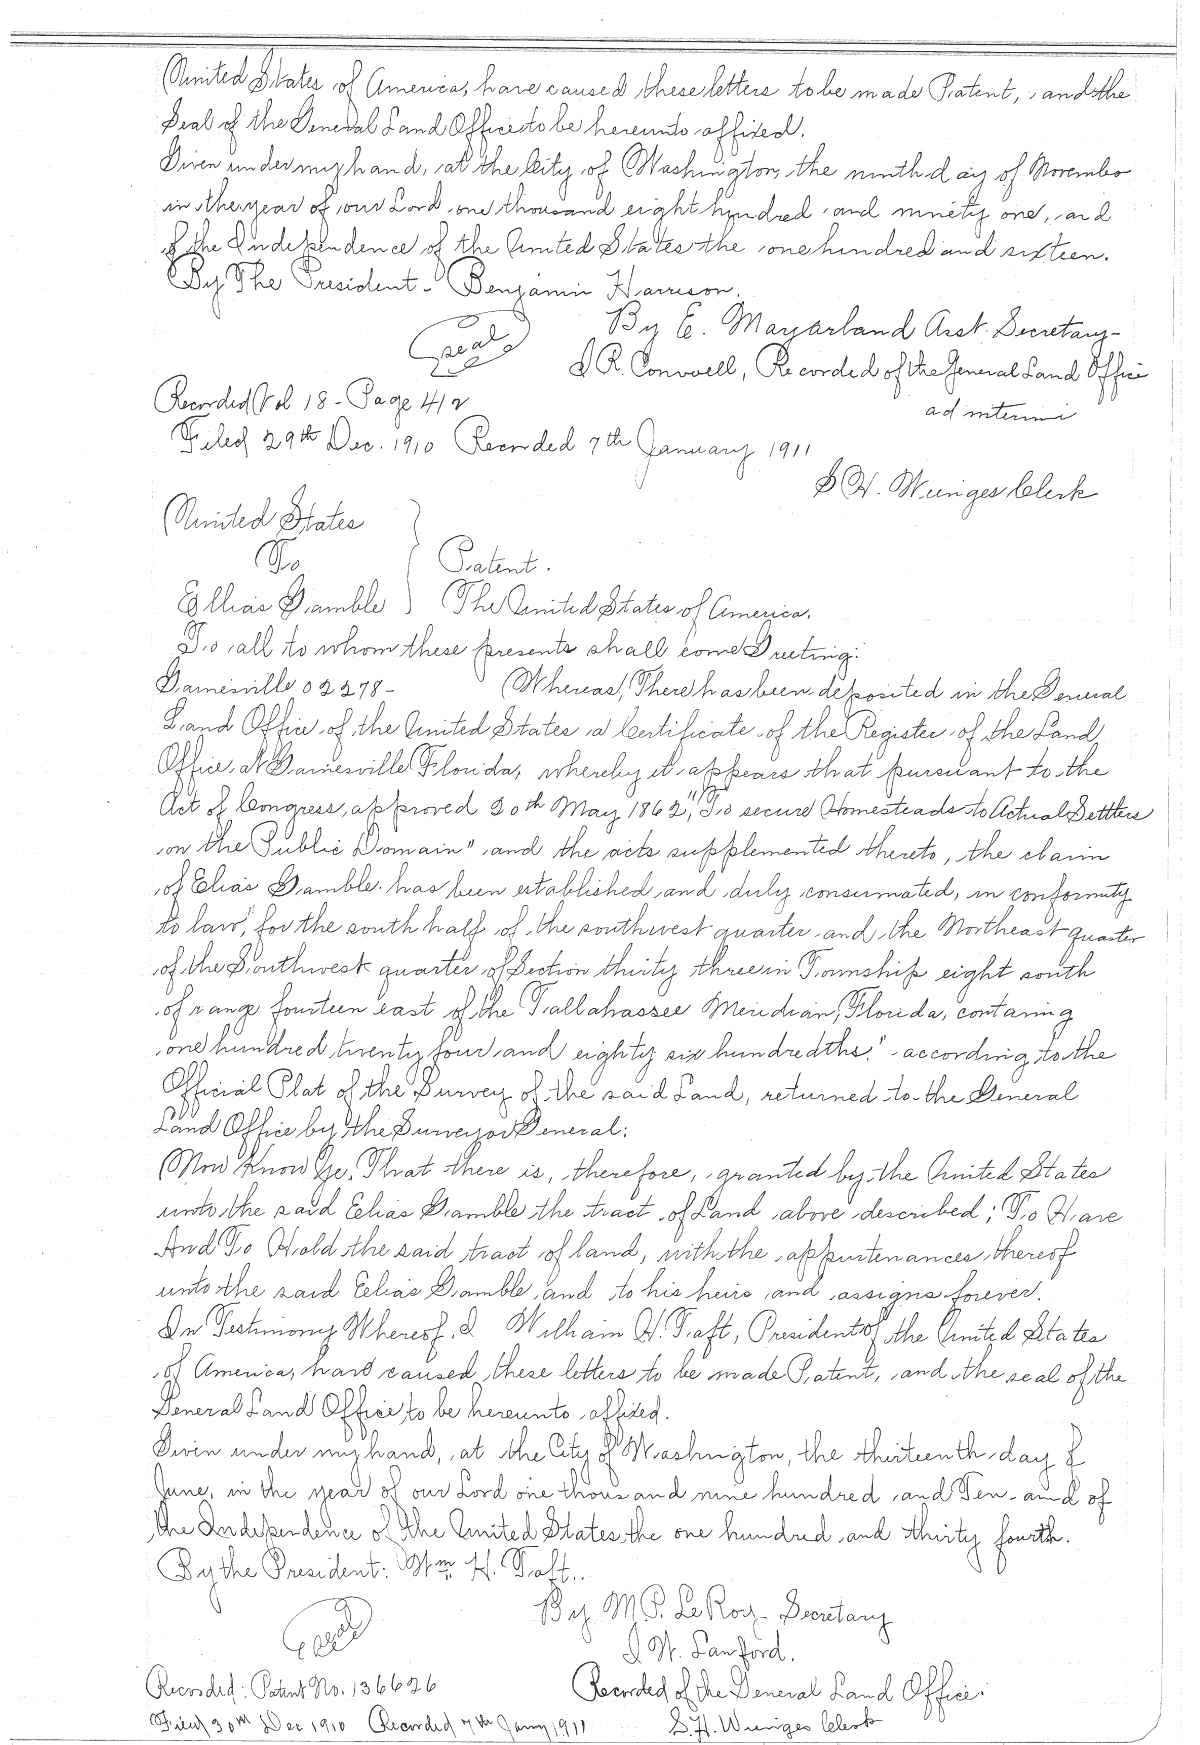 United States of America, have caused these letters to be made Patent, and the
Seal of the General Land Office to be hereunto affixed.
Given under my hand, at the City of Washington, the ninth day of November
in the year of our Lord one thousand eight hundred and ninety one, and
of the Independence of the United States the one hundred and sixteen.
By The President - Benjamin Harrison.
By E. Macfarland Asst. Secretary-
Seal
I R. Conwell, Recorded of the General Land Office
ad interim
Recorded Vol 18 - Page 412
Filed 29th Dec. 1910 Recorded 7th January 1911
S H. Wienges Clerk
United States
To Patent.
Ellias Gamble The United States of America.
To all to whom these presents shall come Greeting:
Gainesville 02278- Whereas, There has been deposited in the General
Land Office of the United States a Certificate of the Register of the Land
Office at Gainesville Florida, whereby it appears that pursuant to the
Act of Congress, approved 20th May 1862, "To secure Homesteads to Actual Settlers
on the Public Domain" and the acts supplemented thereto, the claim
of Elias Gamble has been established and duly consumated, in conformity
to law, for the south half of the southwest quarter and the Northeast quarter
of the Southwest quarter of Section thirty three in Township eight south
of range fourteen east of the Tallahassee Meridian, Florida, containg
one hundred twenty four and eighty six hundredths." according to the
Official Plat of the Survey of the said Land, returned to the General
Land Office by the Surveyor General:
Now Know Ye, That there is, therefore, granted by the United States
unto the said Elias Gamble the tract of Land above described; To Have
And To Hold the said tract of land, with the appurtenances thereof
unto the said Elias Gamble and to his heirs and assigns forever.
In Testimony Whereof, I William H. Taft, President of the United States
of America, have caused these letters to be made Patent, and the seal of the
General Land Office to be hereunto affixed.
Given under my hand, at the City of Washington, the thirteenth day of
June, in the year of our Lord one thousand nine hundred and Ten - and of
the Independence of the United States the one hundred and thirty fourth.
By the President: Wm. H. Taft..
By M.P. LeRoy Secretary
Seal
I. W. Sanford.
Recorded: Patent No. 136626 Recorded of the General Land Office.
Filed 30th Dec 1910 Recorded 7th Jany 1911 S.H. Wienges Clerk